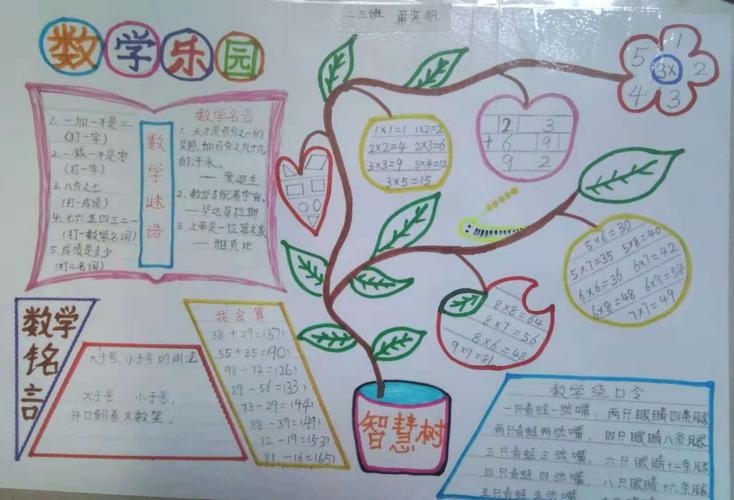 二三班 萧奕帆
数学乐园
1. 一加一不是二
(打一字)
2. 一减一不是零
(打一字)
3. 八分之七
(打一成语)
4. 七六五四三二一
(打一数学名词)
5. 成绩是多少
(打二名词)
数学谜语
数学名言
1. 天才是百分之一的
灵感,加百分之九十九
的汗水。
—爱迪生
2. 数学支配着宇宙。
—毕达哥拉斯
3. 上帝是一位算术家
—雅克比
1×1=1 1×2=2
2×2=4 2×3=6
3×3=9 3×4=12
3×5=15
12 3
+ 6 19
9 2
5 1 2 3 4
3×
5×6=30
5×7=35 5×8=40
6×6=36 6×7=42
6×8=48 6×9=54
7×7=49
8×8=64
8×7=56
8×6=48
9×9=81
数学铭言
大于号、小于号的用法
大于号 小于号,
开口朝着大数笑。
我会算
38+29=(67)
55+35=(90)
98-72=(26)
89-56=(33)
73-29=(44)
88-39=(49)
72-19=(53)
81-16=(65)
智慧树
数学绕口令
一只青蛙一张嘴,两只眼睛四条腿
两只青蛙两张嘴,四只眼睛八条腿
三只青蛙三张嘴,六只眼睛十二条腿
四只青蛙四张嘴,八只眼睛十六条腿
五只青蛙五张嘴